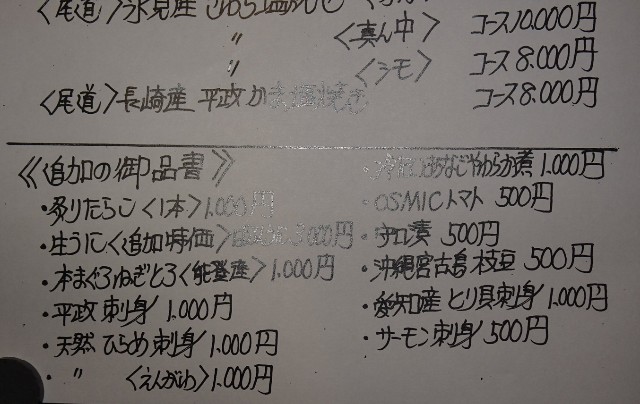 〈尾道〉氷見産
〃 〈真ん中〉 コース10.000円
〃 〈シモ〉 コース8.000円
〈尾道〉長崎産 平政かま塩焼き コース8.000円
《追加の御品書》
・炙りたらこ〈1本〉1.000円
・生うに〈追加時価〉 3.000円
・本まぐろねぎとろ〈能登産〉1.000円
・平政 刺身 1.000円
・天然 ひらめ 刺身 1.000円
・〃 〈えんがわ〉1.000円
あなごやわらか煮 1.000円
・OSMICトマト 500円
・守口漬 500円
・沖縄宮古島 枝豆 500円
・愛知産 とり貝刺身 1.000円
・サーモン刺身 500円